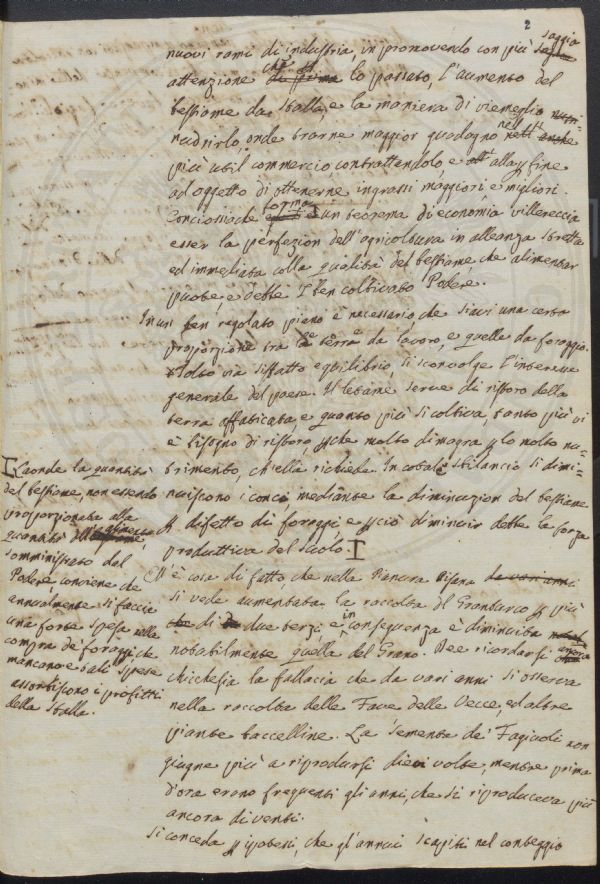 2
nuovi rami di industria in promovendo con più saggia
attenzione che di prima lo passato, l'aumento del
bestiame da stalla, e la maniera di viemeglio nu-
nudrirlo, onde trarne maggior guadagno nell' anche
più util commercio, contrattendolo, e alla fine
ad oggetto di ottenerne ingrassi maggiori, e migliori.
Conciosiachè forma un teorema di economia villereccia
esser la perfezion dell'agricoltura in alleanza stretta
ed immediata colla qualità del bestiame che alimentar
puote, e debbe I ben coltivato Podere.
In un ben regolato piano è necessario che siavi una certa
proporzione tra le terre da lavoro, e quelle da foraggio.
Tolto via siffatto equilibrio, si sconvolge l'interesse
generale del paese. Il letame serve di ristoro della
terra affaticata, e quanto più si coltiva, tanto più vi
è bisogno di ristoro, che molto dimagra lo molto nu-
trimento, ch'ella richiede. In cotale sbilancio si dimi-
nuiscono i conci, mediante la diminuzion del bestiame
difetto di foraggi, e ciò diminuir debbe la forza
produttiva del suolo.
Laonde la quantità
del bestiame, non essendo
proporzionata alla
quantità
somministrato dal
Podere, conviene che
annualmente si faccia
una forte spesa nella
compra de' foraggi, che
mancano e tali spese
assorbiscono i profitti
della stalla.
N'è cosa di fatto che nella Pianura Pisana da vari anni
si vede aumentata la raccolta del Granturco più
di due terzi, e in conseguenza è diminuita
notabilmente quella del Grano. Dee ricordarsi ancora
chicchesia la fallacia che da vari anni si osserva
nella raccolta delle Fave delle Vecce, ed altre
piante baccelline. La sementa de' Fagiuoli non
giugne più a riprodursi dieci volte, mentre prima
d'ora erano frequenti gli anni, che si riproduceva più
ancora di venti.
Si conceda ipotesi, che gl'annui scapiti nel conteggio